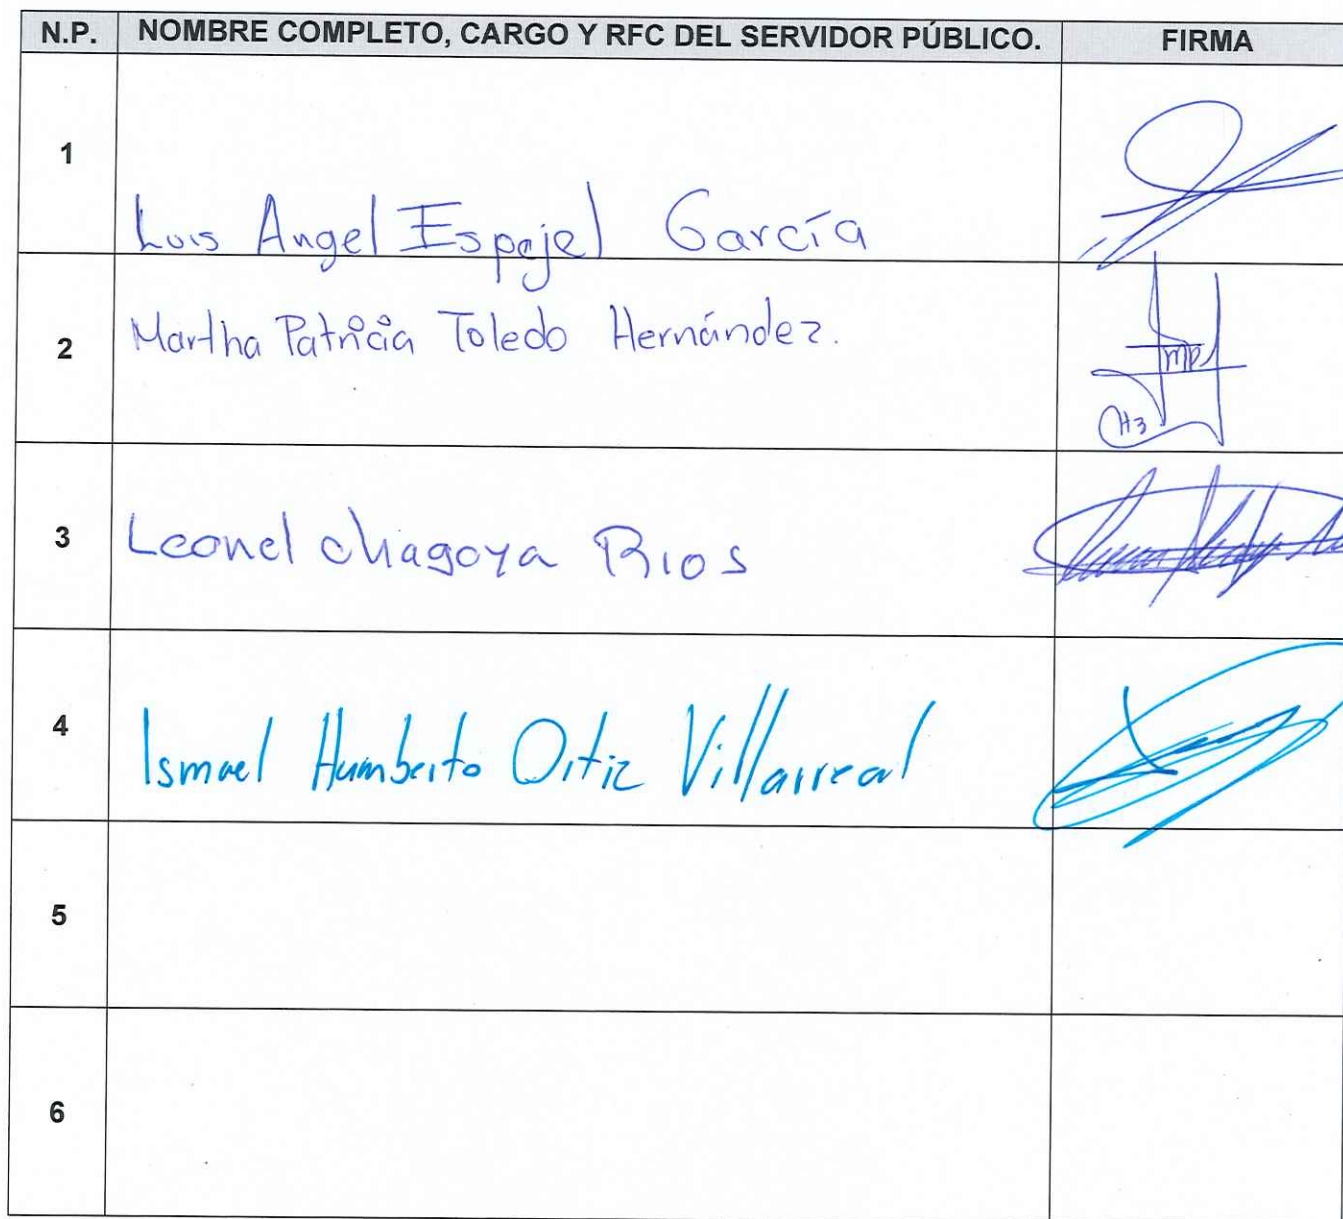 N.P. NOMBRE COMPLETO, CARGO Y RFC DEL SERVIDOR PÚBLICO. FIRMA
1 Luis Angel Espejel García
2 Martha Patricia Toledo Hernández.
MP
H3
3 Leonel chagoya Rios
4 Ismael Humberto Ortiz Villarreal
5
6